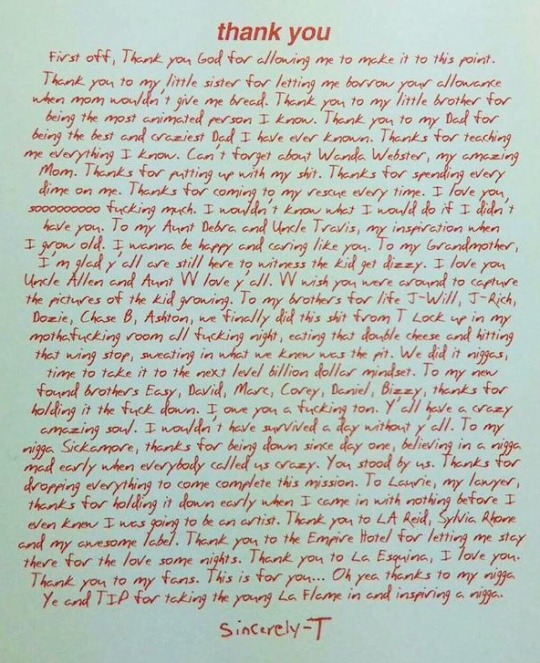 thank you
First off, Thank you God for allowing me to make it to this point.
Thank you to my little sister for letting me borrow your allowance
when mom wouldn't give me bread. Thank you to my little brother for
being the most animated person I know. Thank you to my Dad for
being the best and craziest Dad I have ever known. Thanks for teaching
me everything I know. Can't forget about Wanda Webster, my amazing
Mom. Thanks for putting up with my shit. Thanks for spending every
dime on me. Thanks for coming to my rescue every time. I love you
sooooooooo fucking much. I wouldn't know what I would do if I didn't
have you. To my Aunt Debra and Uncle Travis, my inspiration when
I grow old. I wanna be happy and caring like you. To my Grandmother,
I'm glad y'all are still here to witness the kid get dizzy. I love you
Uncle Allen and Aunt W love y'all. W wish you were around to capture
the pictures of the kid growing. To my brothers for life J-Will, J-Rich,
Dozie, Chase B, Ashton, we finally did this shit from T Lock up in my
mothafucking room all fucking night, eating that double cheese and hitting
that wing stop, sweating in what we knew was the pit. We did it niggas,
time to take it to the next level billion dollar mindset. To my new
found brothers Easy, David, Marc, Corey, Daniel, Bizzy, thanks for
holding it the fuck down. I owe you a fucking ton. Y'all have a crazy
amazing soul. I wouldn't have survived a day without y'all. To my
nigga Sickamore, thanks for being down since day one, believing in a nigga
mad early when everybody called us crazy. You stood by us. Thanks for
dropping everything to come complete this mission. To Laurie, my lawyer,
thanks for holding it down early when I came in with nothing before I
even knew I was going to be an artist. Thank you to LA Reid, Sylvia Rhone
and my awesome label. Thank you to the Empire Hotel for letting me stay
there for the love some nights. Thank you to La Esquina, I love you.
Thank you to my fans. This is for you... Oh yea thanks to my nigga
Ye and TIP for taking the young La Flame in and inspiring a nigga.
Sincerely-T